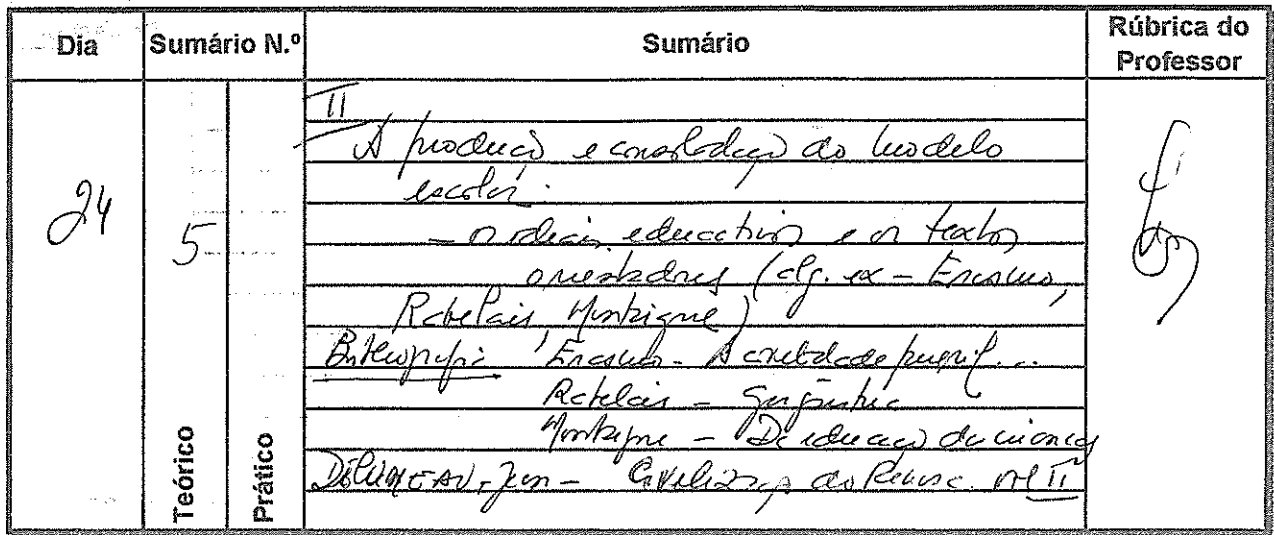 Dia
Sumário N.º
Sumário
Rúbrica do
Professor
24
5
Teórico
Prático
II
A produção e consolidação do modelo
escolar:
- os ideais educativos e os textos
orientadores (alg. ex - Erasmo,
Rabelais, Montaigne)
Bibliografia Erasmo - A civilidade pueril...
Rabelais - Gargântua
Montaigne - Da educação das crianças
DELUMEAU, Jean - Civilização do Renasc. vol II